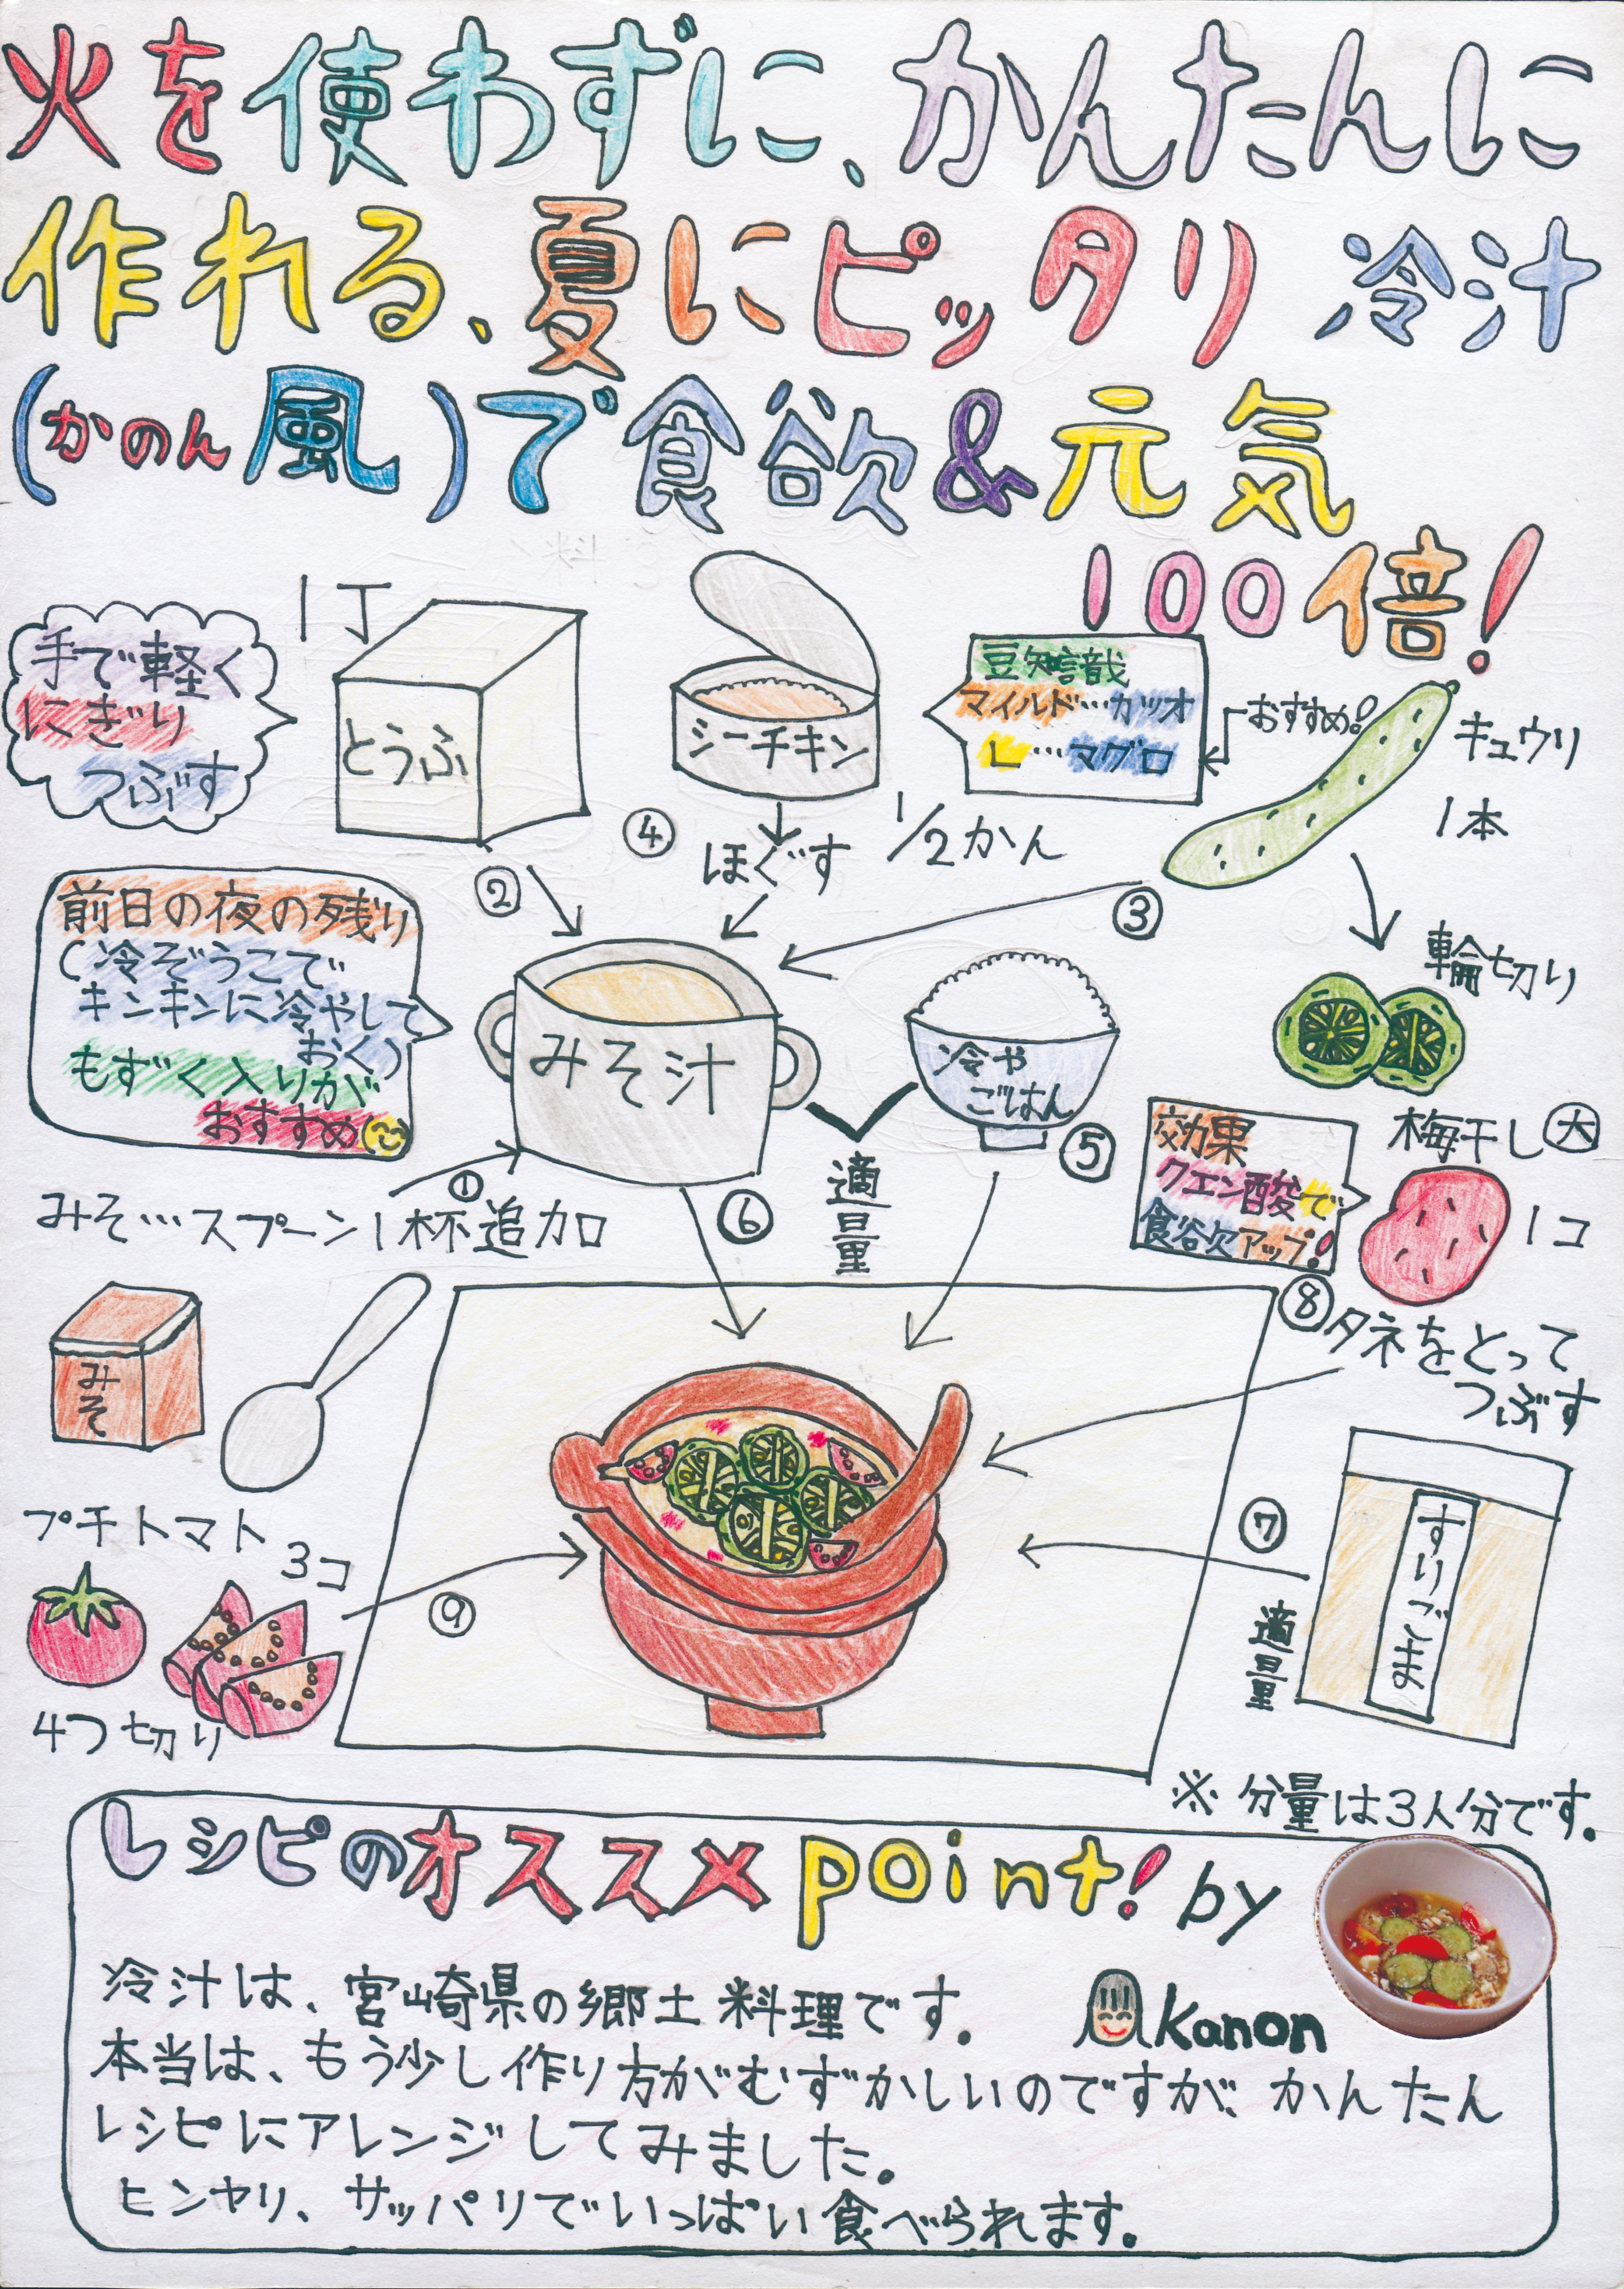 火を使わずに、かんたんに
作れる、夏にピッタリ 冷汁
(かのん風)で食欲&元気
100倍!
手で軽く
にぎり
つぶす
1丁
とうふ
シーチキン
豆知識
マイルド…カツオ
L…マグロ
おすすめ!
キュウリ
1本
④
ほぐす
1/2かん
②
③
輪切り
前日の夜の残り
(冷ぞうこで
キンキンに冷やして
おく)
もずく入りが
おすすめ
みそ汁
冷や
ごはん
⑤
適量
⑥
①
みそ…スプーン1杯追加
効果
クエン酸で
食欲アップ!
梅干し大
1コ
⑧タネをとって
つぶす
みそ
プチトマト
3コ
4つ切り
⑨
⑦
適量
すりごま
※ 分量は3人分です。
レシピのオススメpoint! by
Kanon
冷汁は、宮崎県の郷土料理です。
本当は、もう少し作り方がむずかしいのですが、かんたん
レシピにアレンジしてみました。
ヒンヤリ、サッパリでいっぱい食べられます。